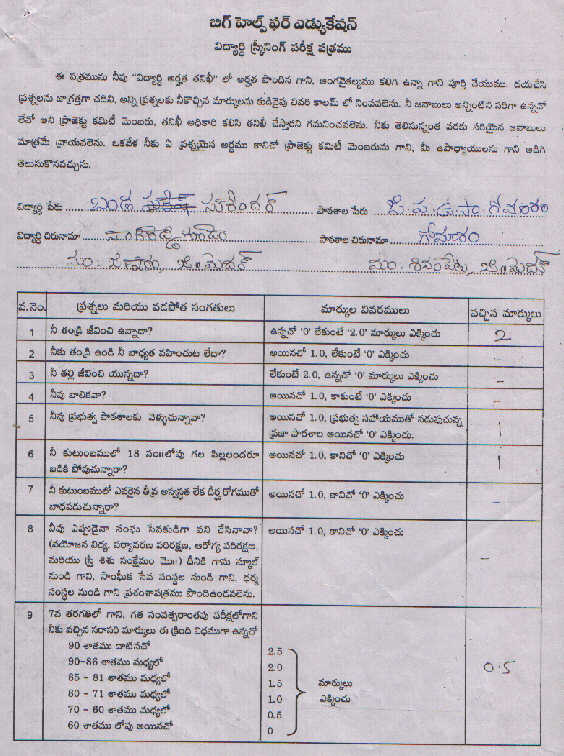 బిగ్ హెల్ప్ ఫర్ ఎడ్యుకేషన్
విద్యార్థి స్క్రీనింగ్ పరీక్ష పత్రము
ఈ పత్రమును నీవు "విద్యార్థి అర్హత తనిఖీ" లో అర్హత పొందిన గాని, అంగవైకల్యము కలిగి ఉన్నా గాని పూర్తి చేయుము. దయచేసి
ప్రశ్నలను జాగ్రత్తగా చదివి, అన్ని ప్రశ్నలకు నీకొచ్చిన మార్కులను కుడివైపు చివరి కాలమ్ లో నింపవలెను. నీ జవాబులు అన్నింటిని సరిగా ఉన్నవో
లేవో అని ప్రాజెక్టు కమిటీ మెంబరు, తనిఖీ అధికారి కలిసి తనిఖీ చేస్తారని గమనించవలెను. నీకు తెలిసున్నంత వరకు సరియైన జవాబులు
మాత్రమే వ్రాయవలెను. ఒకవేళ నీకు ఏ ప్రశ్నయైన అర్థము కానిచో ప్రాజెక్టు కమిటీ మెంబరును గాని, మీ ఉపాధ్యాయులను గాని అడిగి
తెలుసుకొనవచ్చును.
విద్యార్థి పేరు బండ సురేందర్ పాఠశాల పేరు జి.ప.ఉ.పా. గోమారం
విద్యార్థి చిరునామా పాఠశాల చిరునామా గోమారం
మం. శివంపేట జి. మెదక్
వ.నెం. ప్రశ్నలు మరియు వడపోత సంగతులు మార్కుల వివరములు వచ్చిన మార్కులు
1 నీ తండ్రి జీవించి ఉన్నాడా? ఉన్నచో '0' లేకుంటే '2.0' మార్కులు ఎక్కించు 2
2 నీకు తండ్రి ఉండి నీ బాధ్యత వహించుట లేదా? అయినచో 1.0, లేకుంటే '0' ఎక్కించు –
3 నీ తల్లి జీవించి యున్నదా? లేకుంటే 2.0, ఉన్నచో '0' మార్కులు ఎక్కించు –
4 నీవు బాలికవా? అయినచో 1.0, కాకుంటే '0' ఎక్కించు –
5 నీవు ప్రభుత్వ పాఠశాలకు వెళ్ళుచున్నావా? అయినచో 1.0, ప్రభుత్వ సహాయముతో నడుపుచున్న 1
ప్రైవేటు పాఠశాల అయినచో '0' ఎక్కించు.
6 నీ కుటుంబములో 18 సం॥లోపు గల పిల్లలందరూ అయినచో 1.0, కానిచో '0' ఎక్కించు 1
బడికి పోవుచున్నారా?
7 నీ కుటుంబములో ఎవరైన తీవ్ర అస్వస్థత లేక దీర్ఘ రోగముతో అయినచో 1.0, కానిచో '0' ఎక్కించు –
బాధపడుచున్నారా?
8 నీవు ఎప్పుడైనా సంఘ సేవకుడిగా పని చేసినావా? అయినచో 1.0, కానిచో '0' ఎక్కించు –
(వయోజన విద్య, పర్యావరణ పరిరక్షణ, ఆరోగ్య పరిరక్షణ
మరియు స్త్రీ శిశు సంక్షేమం మొ॥) దీనికి గాను స్కూల్
నుండి గాని, సాంఘిక సేవ సంస్థల నుండి గాని, ధర్మ
సంస్థల నుండి గాని ప్రశంసాపత్రము పొందిఉండవలెను.
9 7వ తరగతిలో గాని, గత సంవత్సరాంతపు పరీక్షలోగాని
నీకు వచ్చిన సరాసరి మార్కులు ఈ క్రింది విధముగా ఉన్నచో
90 శాతము దాటినచో 2.5
90-86 శాతము మధ్యలో 2.0
85 - 81 శాతము మధ్యలో 1.5 మార్కులు 0.5
80 - 71 శాతము మధ్యలో 1.0 ఎక్కించు
70 - 60 శాతము మధ్యలో 0.5
60 శాతము లోపు అయినచో 0